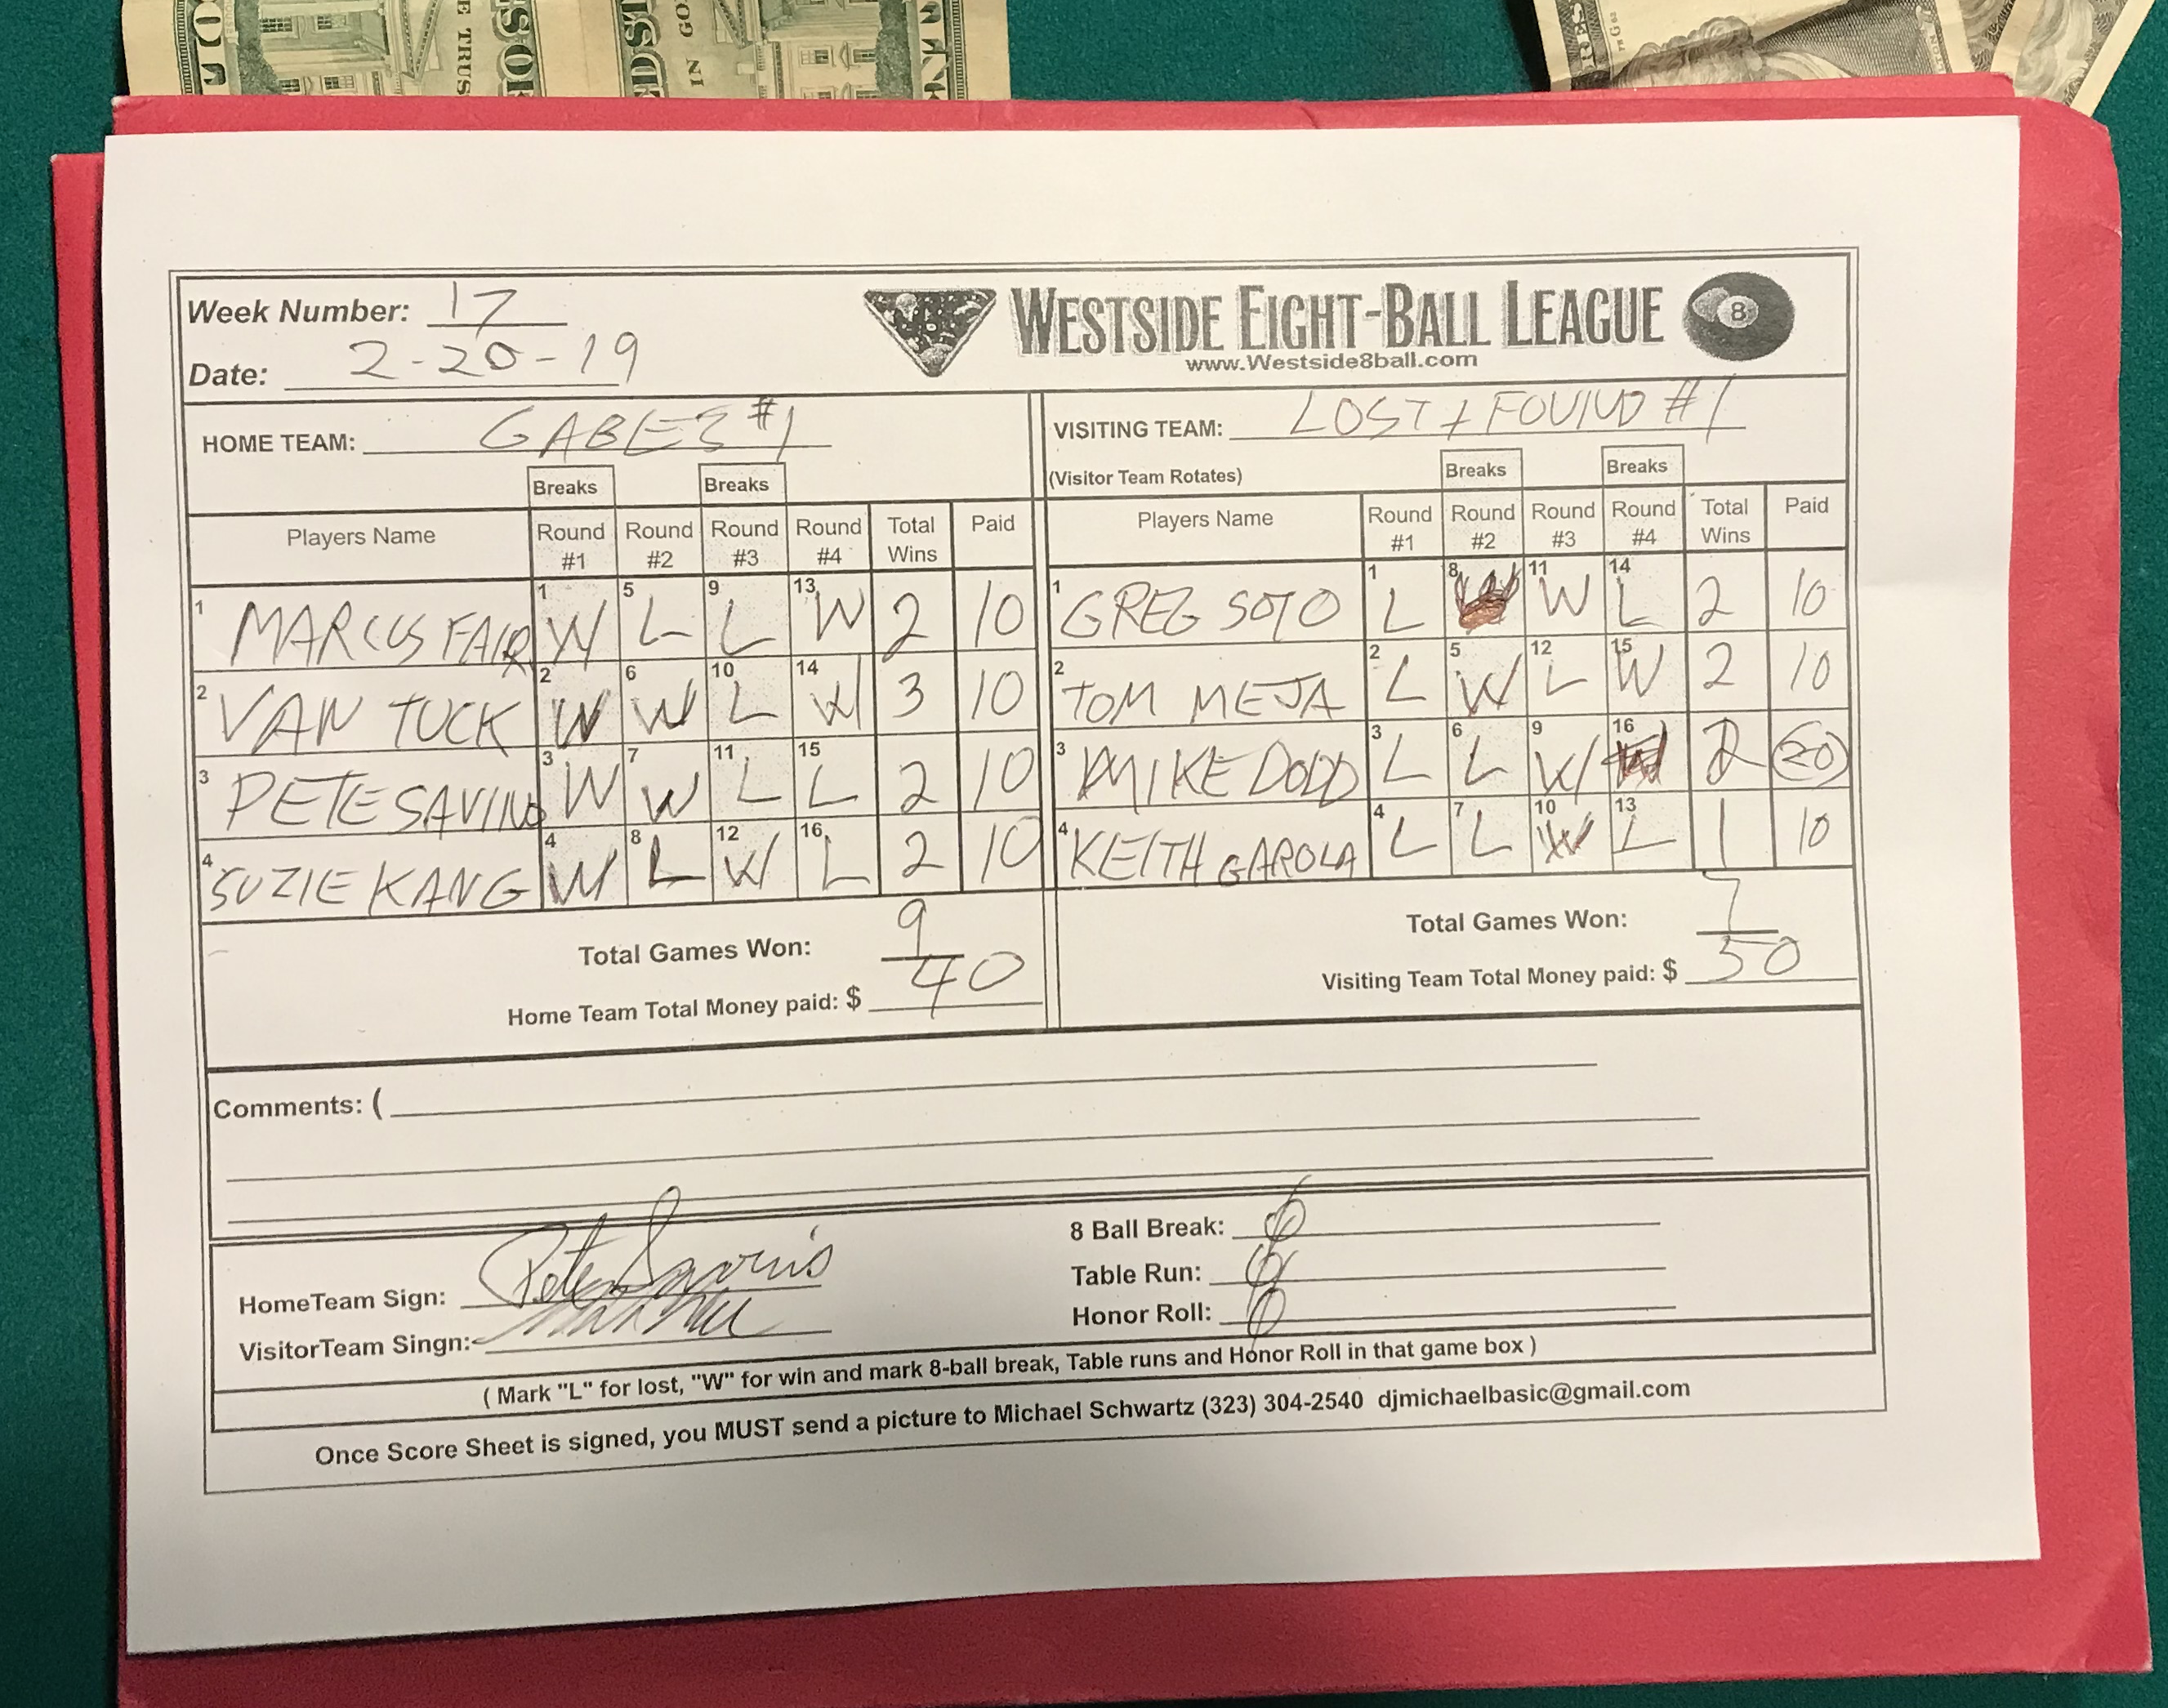 Week Number: 17
Date: 2-20-19
WESTSIDE EIGHT-BALL LEAGUE 8
www.Westside8ball.com
HOME TEAM: GABES #1
VISITING TEAM: LOST + FOUND #1
(Visitor Team Rotates)
Breaks Breaks Breaks Breaks
Players Name Round #1 Round #2 Round #3 Round #4 Total Wins Paid
Players Name Round #1 Round #2 Round #3 Round #4 Total Wins Paid
1 MARCUS FAIR 1 W 5 L 9 L 13 W 2 10
1 GREG SOTO 1 L 8 W 11 W 14 L 2 10
2 VAN TUCK 2 W 6 W 10 L 14 W 3 10
2 TOM MEJA 2 L 5 W 12 L 15 W 2 10
3 PETE SAVINO 3 W 7 W 11 L 15 L 2 10
3 MIKE DODD 3 L 6 L 9 W 16 W 2 20
4 SUZIE KANG 4 W 8 L 12 W 16 L 2 10
4 KEITH GAROLA 4 L 7 L 10 W 13 L 1 10
Total Games Won: 9
Home Team Total Money paid: $ 40
Total Games Won: 7
Visiting Team Total Money paid: $ 50
Comments: (
HomeTeam Sign:
VisitorTeam Singn:
8 Ball Break: 0
Table Run: 0
Honor Roll: 0
( Mark "L" for lost, "W" for win and mark 8-ball break, Table runs and Honor Roll in that game box )
Once Score Sheet is signed, you MUST send a picture to Michael Schwartz (323) 304-2540 djmichaelbasic@gmail.com